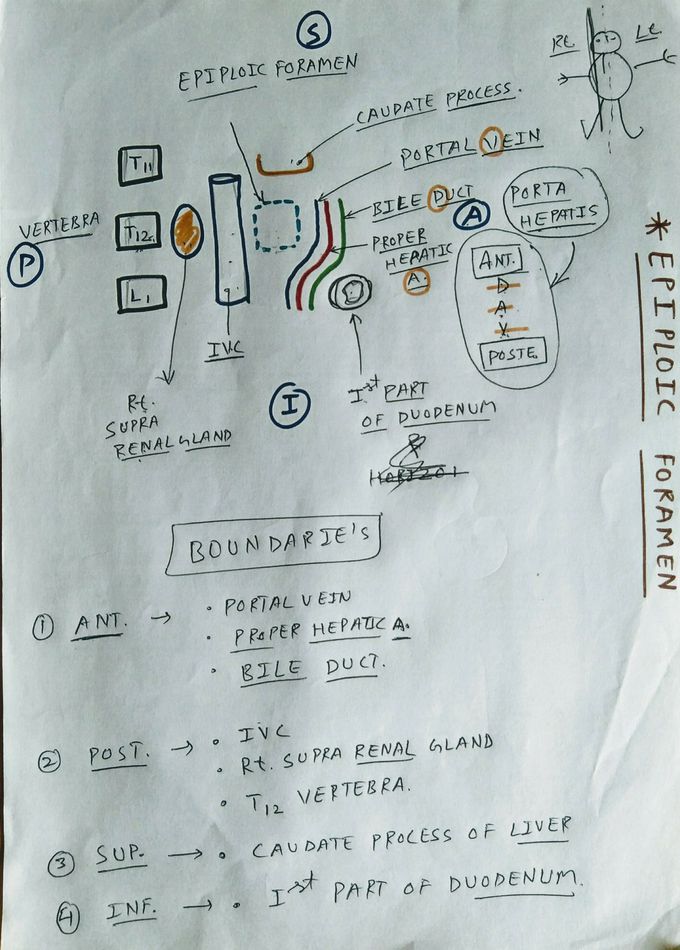 S
EPIPLOIC FORAMEN
Rt Lt
CAUDATE PROCESS.
PORTAL VEIN
T11
BILE DUCT
A
PORTA
HEPATIS
VERTEBRA
T12
PROPER
HEPATIC
A.
P
ANT.
D
A
V
POSTE.
L1
IVC
* EPIPLOIC FORAMEN
Rt.
SUPRA
RENAL GLAND
I
Ist PART
OF DUODENUM
&
BOUNDARIE's
1 ANT. → • PORTAL VEIN
• PROPER HEPATIC A.
• BILE DUCT.
2 POST. → • IVC
• Rt. SUPRA RENAL GLAND
• T12 VERTEBRA.
3 SUP. → • CAUDATE PROCESS OF LIVER
4 INF. → • Ist PART OF DUODENUM.